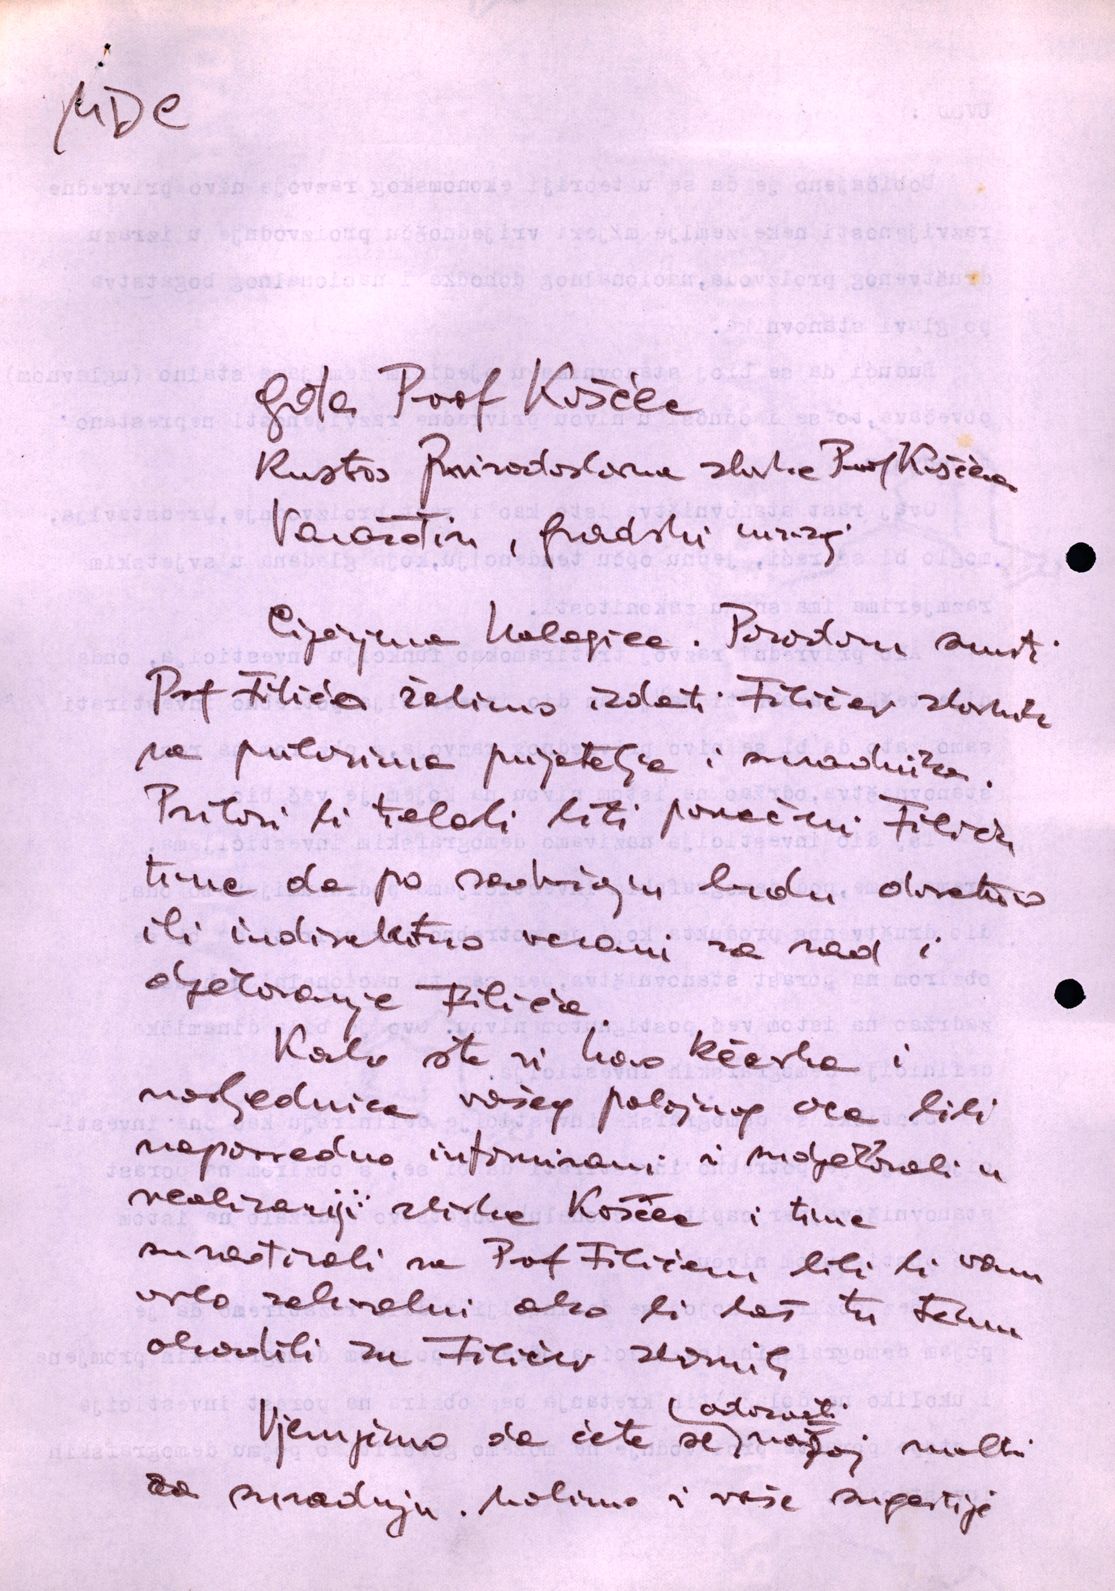 MDC
gđa Prof Košćec
Kustos Prirodoslovne zbirke Prof Košćeca
Varaždin, gradski muzej
Cijenjena kolegice. Povodom smrti
Prof Filića želimo izdati Filićev zbornik
sa prilozima prijatelja i suradnika.
Prilozi bi trebali biti posvećeni Filiću
time da po sadržaju budu direktno
ili indirektno vezani za rad i
djelovanje Filića.
Kako ste vi kao kćerka i
nasljednica vašeg pokojnog oca bili
neposredno informirani i sudjelovali u
realizaciji zbirke Košćec i time
surađivali sa Prof Filićem bili bi vam
vrlo zahvalni ako bi baš tu temu
obradili za Filićev zbornik
Vjerujemo da ćete se odazvati našoj molbi
za suradnju. Molimo i vaše sugestije